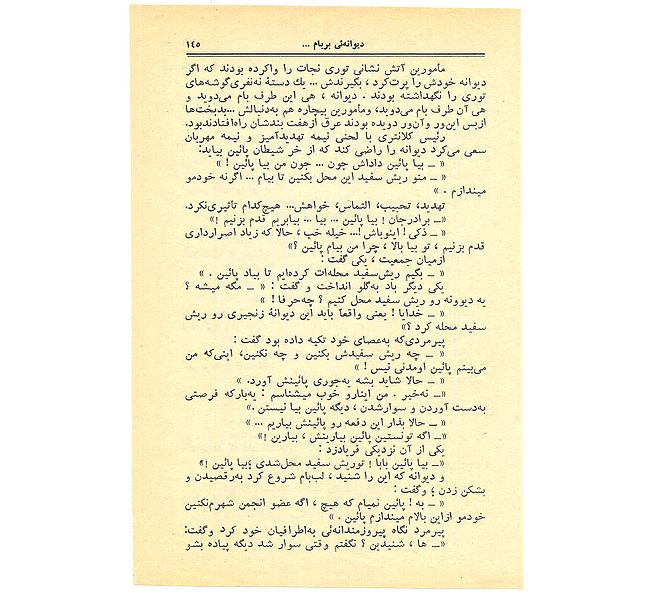 دیوانه‌ئی بربام ...
۱۴۵
مأمورین آتش نشانی توری نجات را واکرده بودند که اگر
دیوانه خودش را پرت‌کرد ، بگیرندش ... یك دستهٔ نه‌نفری‌گوشه‌های
توری را نگهداشته بودند . دیوانه ، هی این طرف بام می‌دوید و
هی آن طرف بام می‌دوید، ومأمورین بیچاره هم به‌دنبالش ...بدبخت‌ها
ازبس این‌ور وآن‌ور دویده بودند عرق ازهفت بندشان راه‌افتاده‌بود.
رئیس کلانتری با لحنی نیمه تهدیدآمیز و نیمه مهربان
سعی می‌کرد دیوانه را راضی کند که از خر شیطان پائین بیاید:
« ــ بیا پائین داداش جون ... جون من بیا پائین ! »
« ــ منو ریش سفید این محل بکنین تا بیام ... اگرنه خودمو
میندازم . »
تهدید، تحبیب، التماس، خواهش... هیچ‌کدام تأثیری‌نکرد.
«ــ برادرجان ! بیا پائین ... بیا ... بیابریم قدم بزنیم !»
« ــ ذکی ! اینوباش !... خیله خب ، حالا که زیاد اصرارداری
قدم بزنیم ، تو بیا بالا ، چرا من بیام پائین ؟»
ازمیان جمعیت ، یکی گفت :
« ــ بگیم ریش‌سفید محله‌ات کرده‌ایم تا بیاد پائین . »
یکی دیگر باد به‌گلو انداخت و گفت : « ــ مگه میشه ؟
یه دیوونه رو ریش سفید محل کنیم ؟ چه‌حرفا ! »
« ــ خدایا ! یعنی واقعاً باید این دیوانهٔ زنجیری رو ریش
سفید محله کرد ؟»
پیرمردی‌که به‌عصای خود تکیه داده بود گفت :
« ــ چه ریش سفیدش بکنین و چه نکنین، اینی‌که من
می‌بینم پائین اومدنی نیس ! »
« ــ حالا شاید بشه یه‌جوری پائینش آورد. »
«ــ نه‌خیر . من اینارو خوب میشناسم : یه‌بارکه فرصتی
به‌دست آوردن و سوارشدن ، دیگه پائین بیا نیستن .»
« ــ حالا بذار این دفعه رو پائینش بیاریم ... »
«ــ اگه تونستین پائین بیارینش ، بیارین !»
یکی از آن نزدیکی فریادزد :
«ــ بیا پائین بابا ! توریش سفید محل‌شدی ؛ بیا پائین !»
و دیوانه که این را شنید ، لب‌بام شروع کرد به‌رقصیدن و
بشکن زدن ؛ وگفت :
« ــ به ! پائین نمیام که هیچ ، اگه عضو انجمن شهرم‌نکنین
خودمو ازاین بالام میندازم پائین . »
پیرمرد نگاه پیروزمندانه‌ئی به‌اطرافیان خود کرد وگفت:
«ــ ها ، شنیدین ؟ نگفتم وقتی سوار شد دیگه پیاده بشو